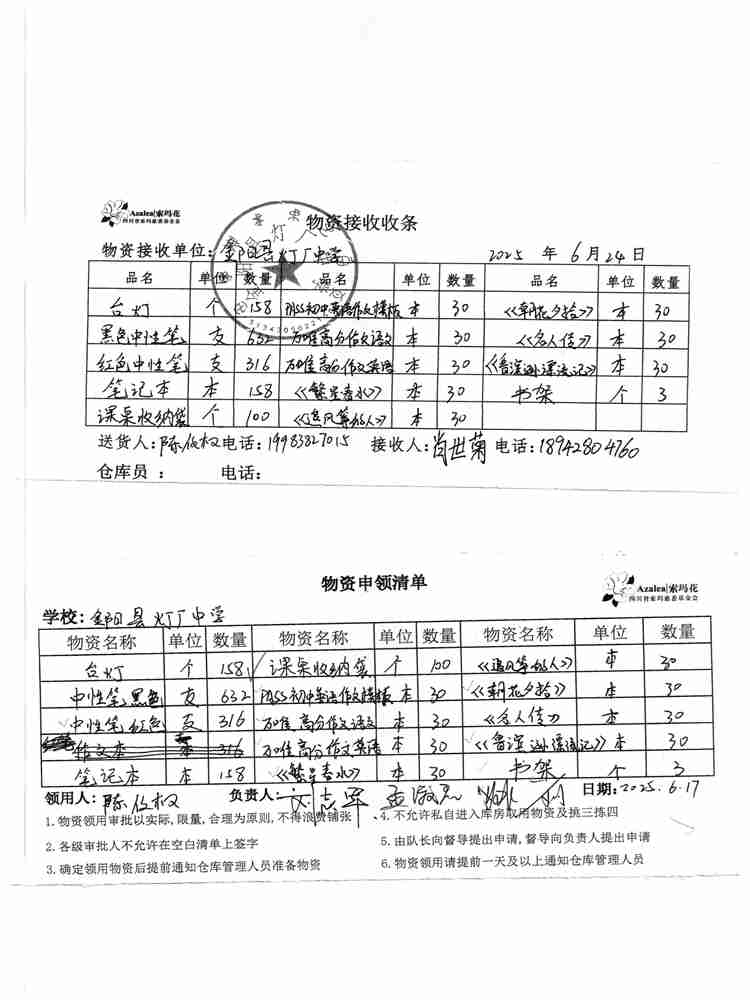 Azalea|索玛花
四川省索玛慈善基金会
物资接收收条
物资接收单位:金阳县灯厂中学 2025 年 6 月 24 日
品名 单位 数量 品名 单位 数量 品名 单位 数量
台灯 个 158 PASS初中英语作文模板 本 30 《朝花夕拾》 本 30
黑色中性笔 支 632 加佳高分作文语文 本 30 《名人传》 本 30
红色中性笔 支 316 加佳高分作文英语 本 30 《鲁滨逊漂流记》 本 30
笔记本 本 158 《繁星春水》 本 30 书架 个 3
课桌收纳袋 个 100 《追风筝的人》 本 30
送货人:陈伍权 电话:19983827015 接收人:肖世菊 电话:18942804760
仓库员 : 电话:
物资申领清单
Azalea|索玛花
四川省索玛慈善基金会
学校:金阳县灯厂中学
物资名称 单位 数量 物资名称 单位 数量 物资名称 单位 数量
台灯 个 158 课桌收纳袋 个 100 《追风筝的人》 本 30
中性笔黑色 支 632 PASS初中英语作文模板 本 30 《朝花夕拾》 本 30
中性笔红色 支 316 加佳高分作文语文 本 30 《名人传》 本 30
作文本 本 316 加佳高分作文英语 本 30 《鲁滨逊漂流记》 本 30
笔记本 本 158 《繁星春水》 本 30 书架 个 3
领用人:陈伍权 负责人: 日期:2025.6.17
1.物资领用审批以实际,限量,合理为原则,不得浪费铺张
2.各级审批人不允许在空白清单上签字
3.确定领用物资后提前通知仓库管理人员准备物资
4.不允许私自进入库房取用物资及挑三拣四
5.由队长向督导提出申请,督导向负责人提出申请
6.物资领用请提前一天及以上通知仓库管理人员